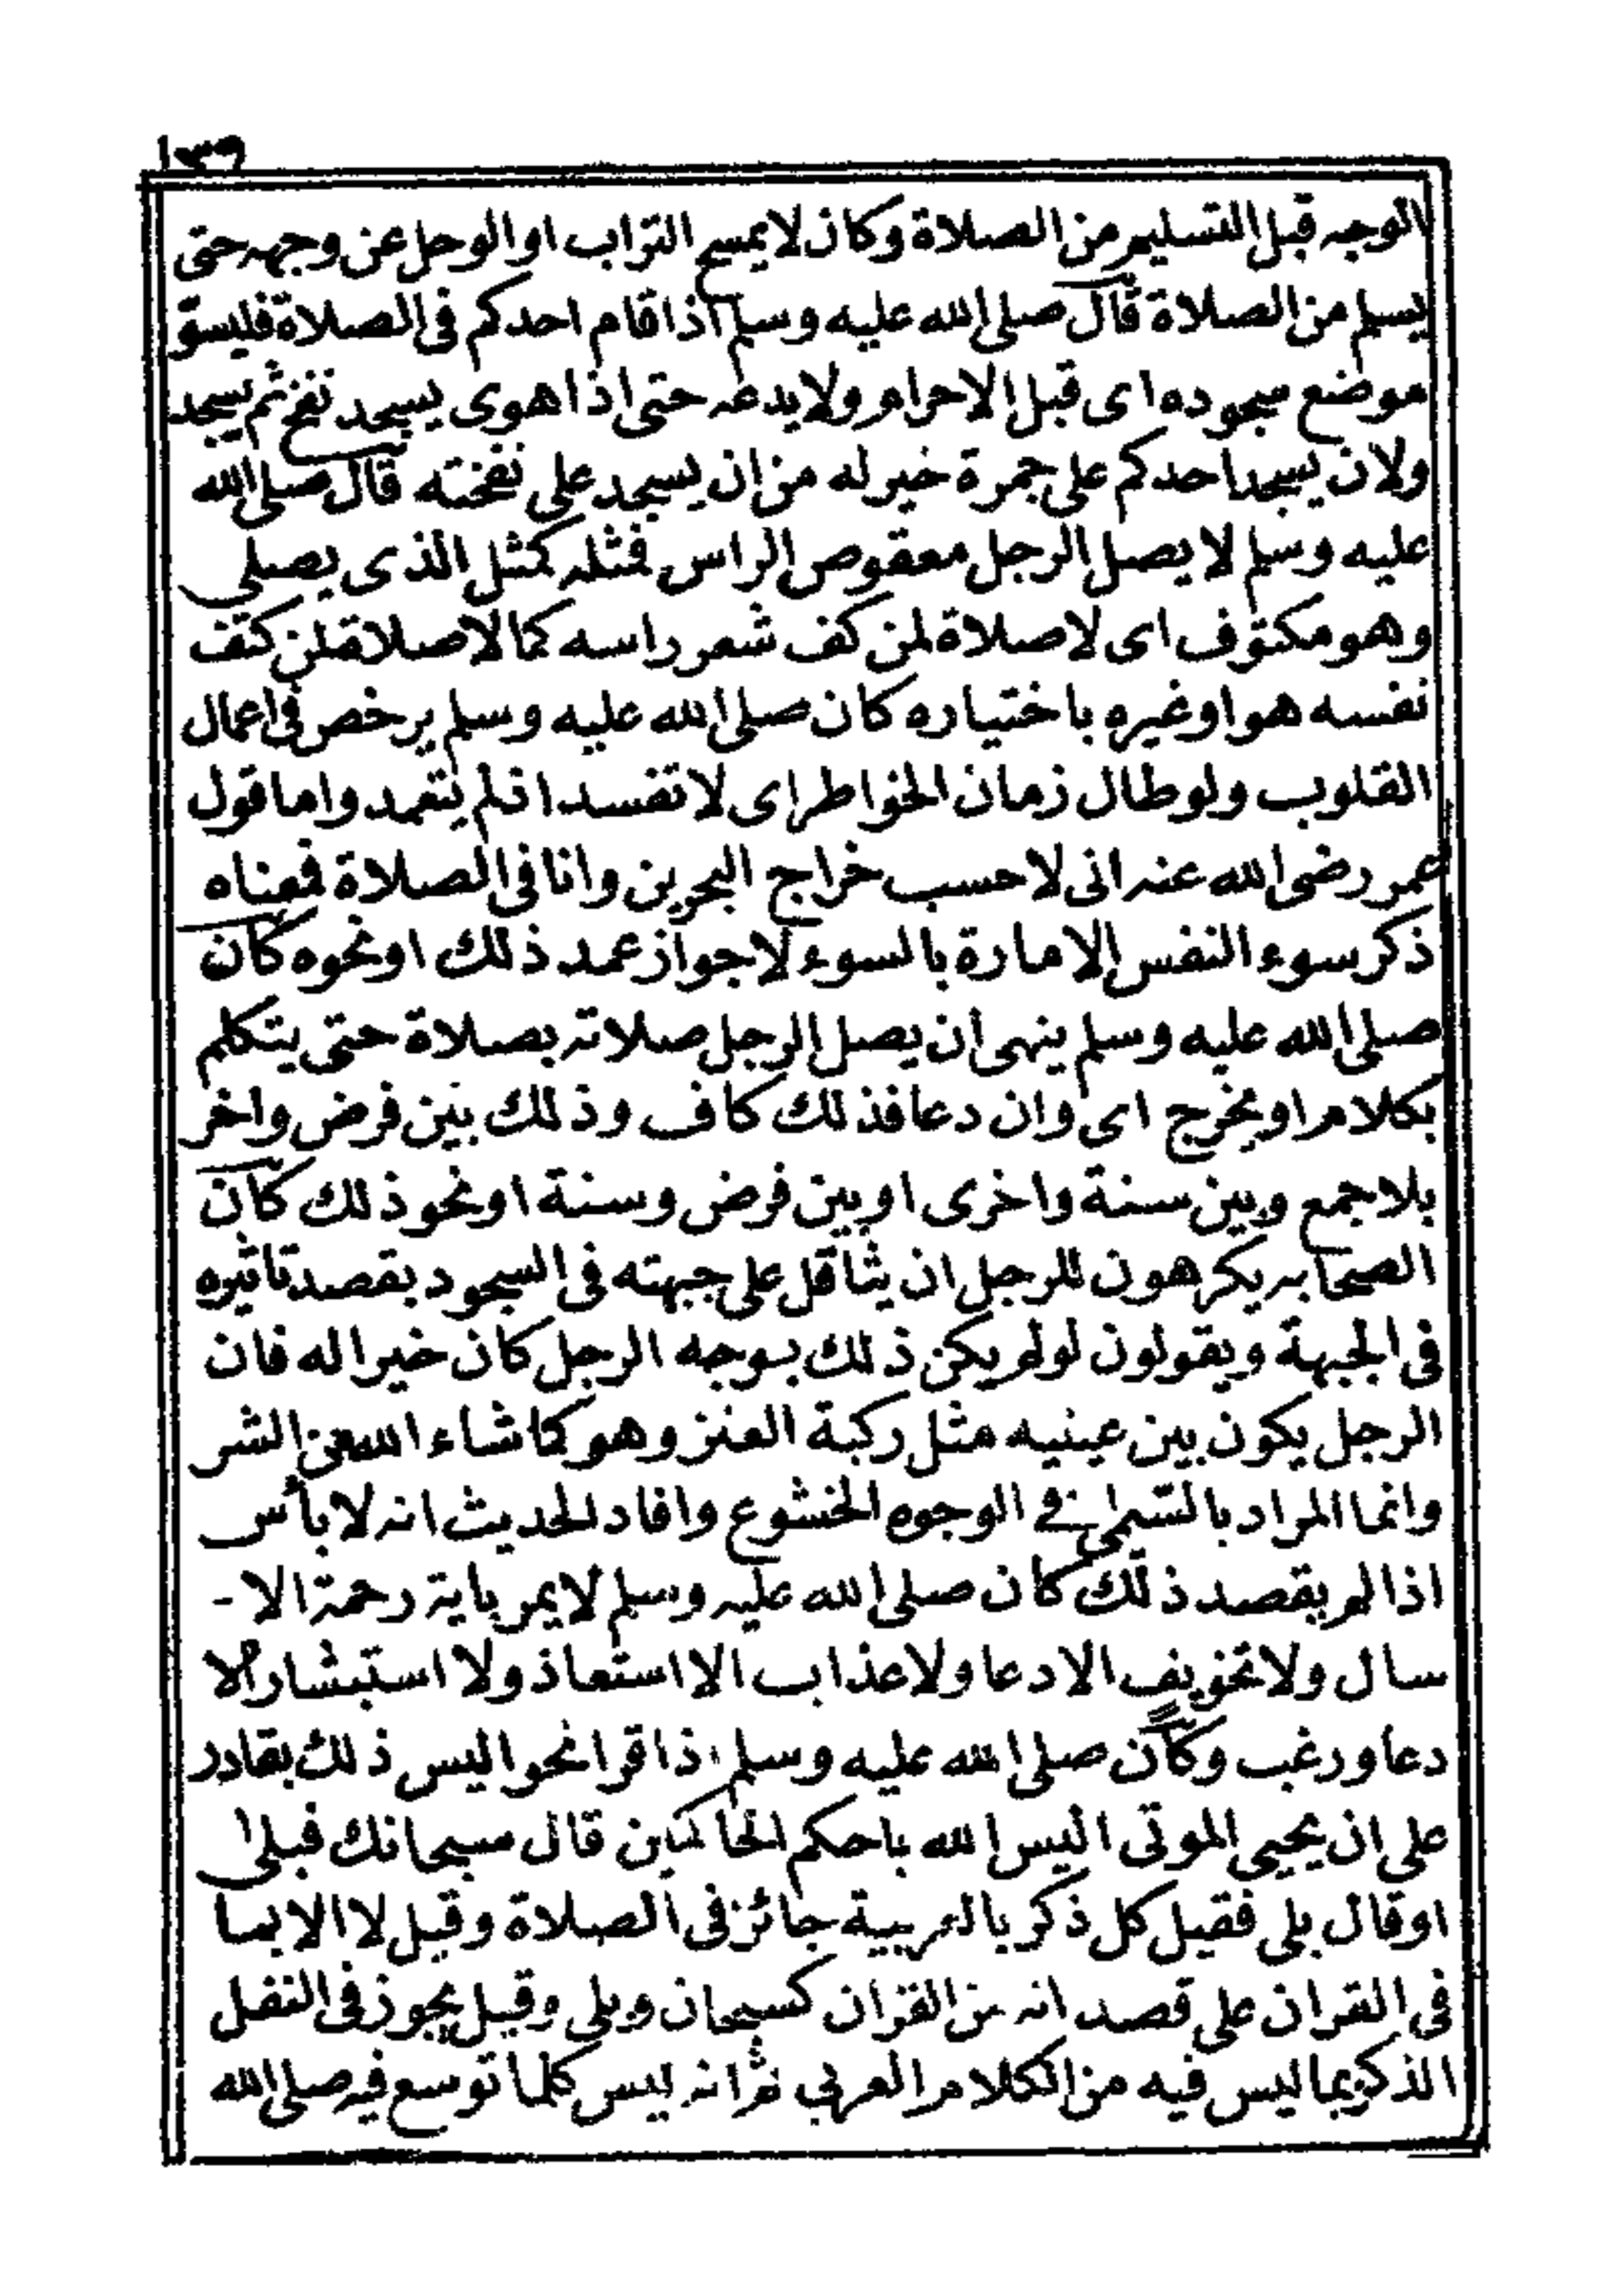 ١٣٩
الوجه قبل التسليم من الصلاة وكان لا يمسح التراب او الوحل عن وجهه حتى
يسلم من الصلاة قال صلى الله عليه وسلم اذا قام احدكم فى الصلاة فليسو
موضع سجوده اى قبل الاحرام ولا يدعه حتى اذا هوى يسجد نفخ ثم يسجد
ولان يسجد احدكم على جمرة خير له من ان يسجد على نفخته قال صلى الله
عليه وسلم لا يصل الرجل معقوص الراس فمثله كمثل الذى يصلى
وهو مكتوف اى لا صلاة لمن كف شعر راسه كما لا صلاة لمن كتف
نفسه هو او غيره باختياره كان صلى الله عليه وسلم يرخص فى اعمال
القلوب ولو طال زمان الخواطر اى لا تفسد ان لم يتعمد واما قول
عمر رضى الله عنه انى لاحسب خراج البحرين وانا فى الصلاة فمعناه
ذكر سوء النفس الامارة بالسوء لا جواز عمد ذلك او نحوه كان
صلى الله عليه وسلم ينهى ان يصل الرجل صلاته بصلاة حتى يتكلم
بكلام او يخرج اى وان دعا فذلك كاف وذلك بين فرض واخر
بلا جمع وبين سنة واخرى او بين فرض وسنة او نحو ذلك كان
الصحابه يكرهون للرجل ان يثاقل على جبهته فى السجود بقصد تاثيره
فى الجبهة ويقولون لو لم يكن ذلك بوجه الرجل كان خيرا له فان
الرجل يكون بين عينيه مثل ركبة العنز وهو كما شاء الله من الشر
وانما المراد بالسيمى فى الوجوه الخشوع وافاد الحديث انه لا بأس
اذا لم يقصد ذلك كان صلى الله عليه وسلم لا يمر باية رحمة الا -
سال ولا تخويف الا دعا ولا عذاب الا استعاذ ولا استبشار الا
دعا ورغب وكان صلى الله عليه وسلم اذا قرا نحو اليس ذلك بقادر
على ان يحيى الموتى اليس الله باحكم الحاكمين قال سبحانك فبلى
او قال بلى فقيل كل ذكر بالعربية جائز فى الصلاة وقيل لا الا بما
فى القران على قصد انه من القران كسبحان وبلى وقيل يجوز فى النفل
الذكر بما ليس فيه من الكلام العربى ثم انه ليس كلما توسع فيه صلى الله